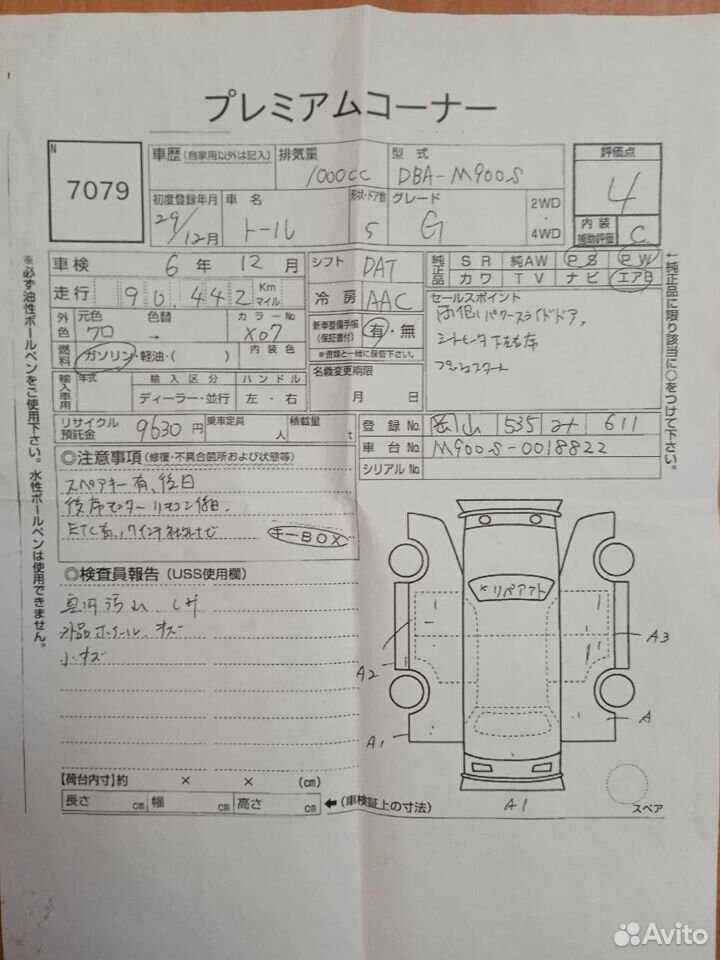 プレミアムコーナー
N
7079
車歴 (自家用以外は記入) 排気量 1000cc 型式 DBA-M900S
初度登録年月 29/12月 車名 トール 形状・ドア数 5 グレード G 2WD・4WD
評価点 4
内装補助評価 C
車検 6年 12月 シフト DAT
走行 90,442 Km マイル 冷房 AAC
純正品 SR 純AW PS PW
カワ TV ナビ エアB
外色 元色 クロ 色替 → カラーNo X07
新車整備手帳(保証書付) 有・無
※書類と一緒に保管下さい。
セールスポイント
両側パワースライドドア、
プッシュスタート
燃料 ガソリン・軽油・( ) 内装色
輸入車用 年式 輸入区分 ハンドル
ディーラー・並行 左・右
名義変更期限 月 日
リサイクル預託金 9630円 乗車定員 人 積載量 t
登録No. 岡山 535 611
車台No. M900S-0018822
シリアルNo.
◎注意事項 (修復・不具合箇所および状態等)
スペアキー有、後日
後席モニターリモコン後日、
ETC有、
キーBOX
◎検査員報告 (USS使用欄)
外品ホイール、キズ
小キズ
×リペアアト
A2
A3
A
A1
A1
スペア
【荷台内寸】約 × × (cm)
長さ cm 幅 cm 高さ cm ←(車検証上の寸法)
※必ず油性ボールペンをご使用下さい。水性ボールペンは使用できません。
↑純正品に限り該当に○をつけて下さい。
Avito